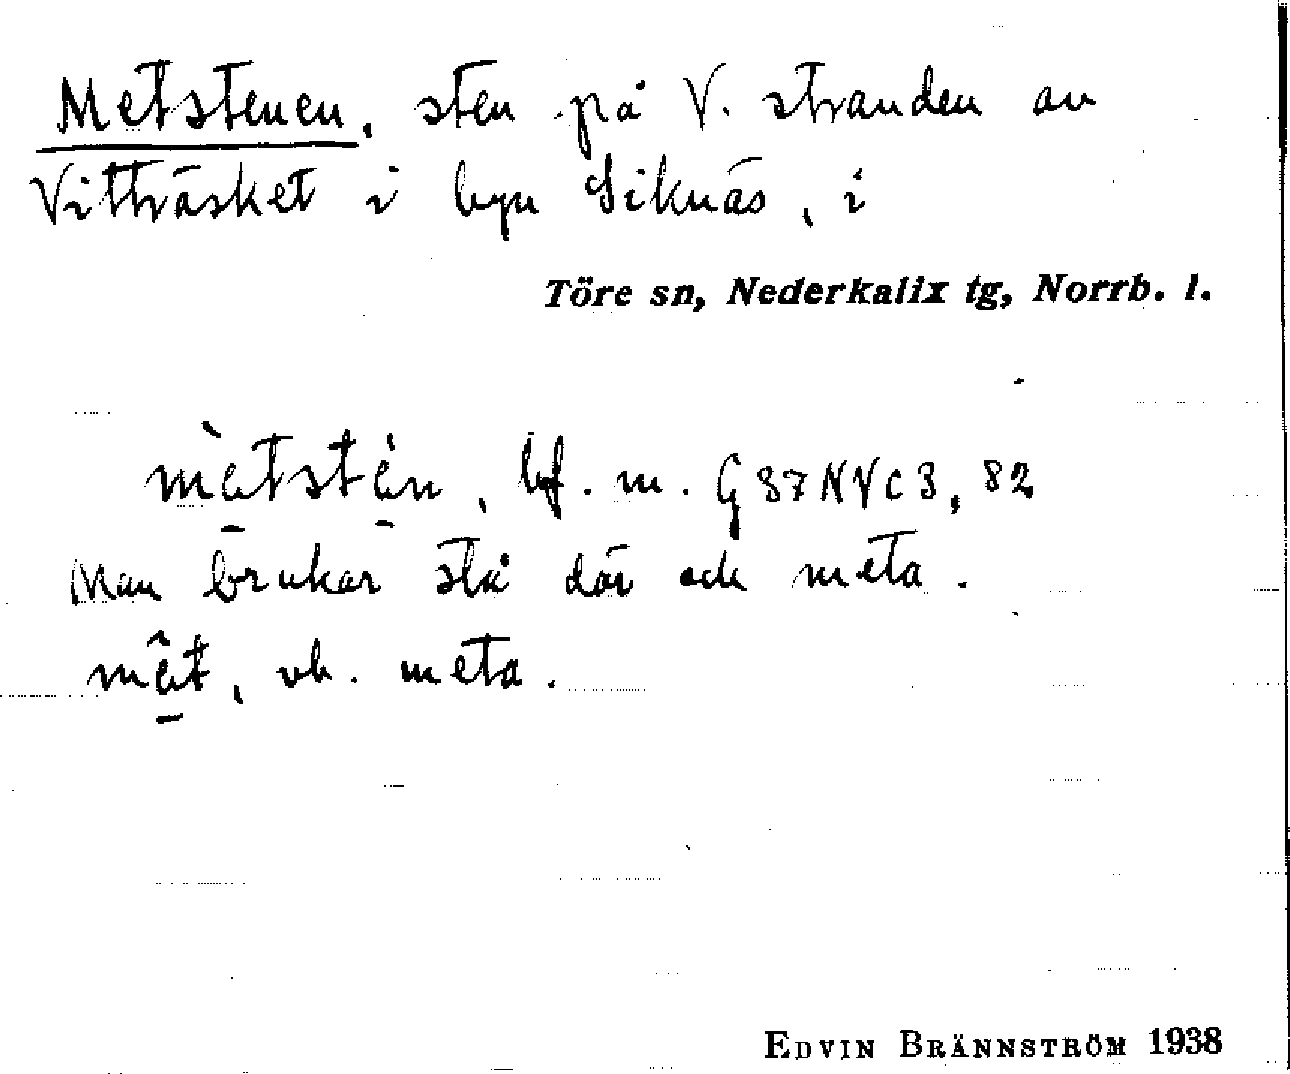 Metstenen, sten på V. stranden av
Vitträsket i byn Siknäs, i
Töre sn, Nederkalix tg, Norrb. l.
mæ̀tstén, bf. m. G 37 NV c 3, 82
Man brukar stå där och meta.
mæ̂t, vb. meta.
EDVIN BRÄNNSTRÖM 1938